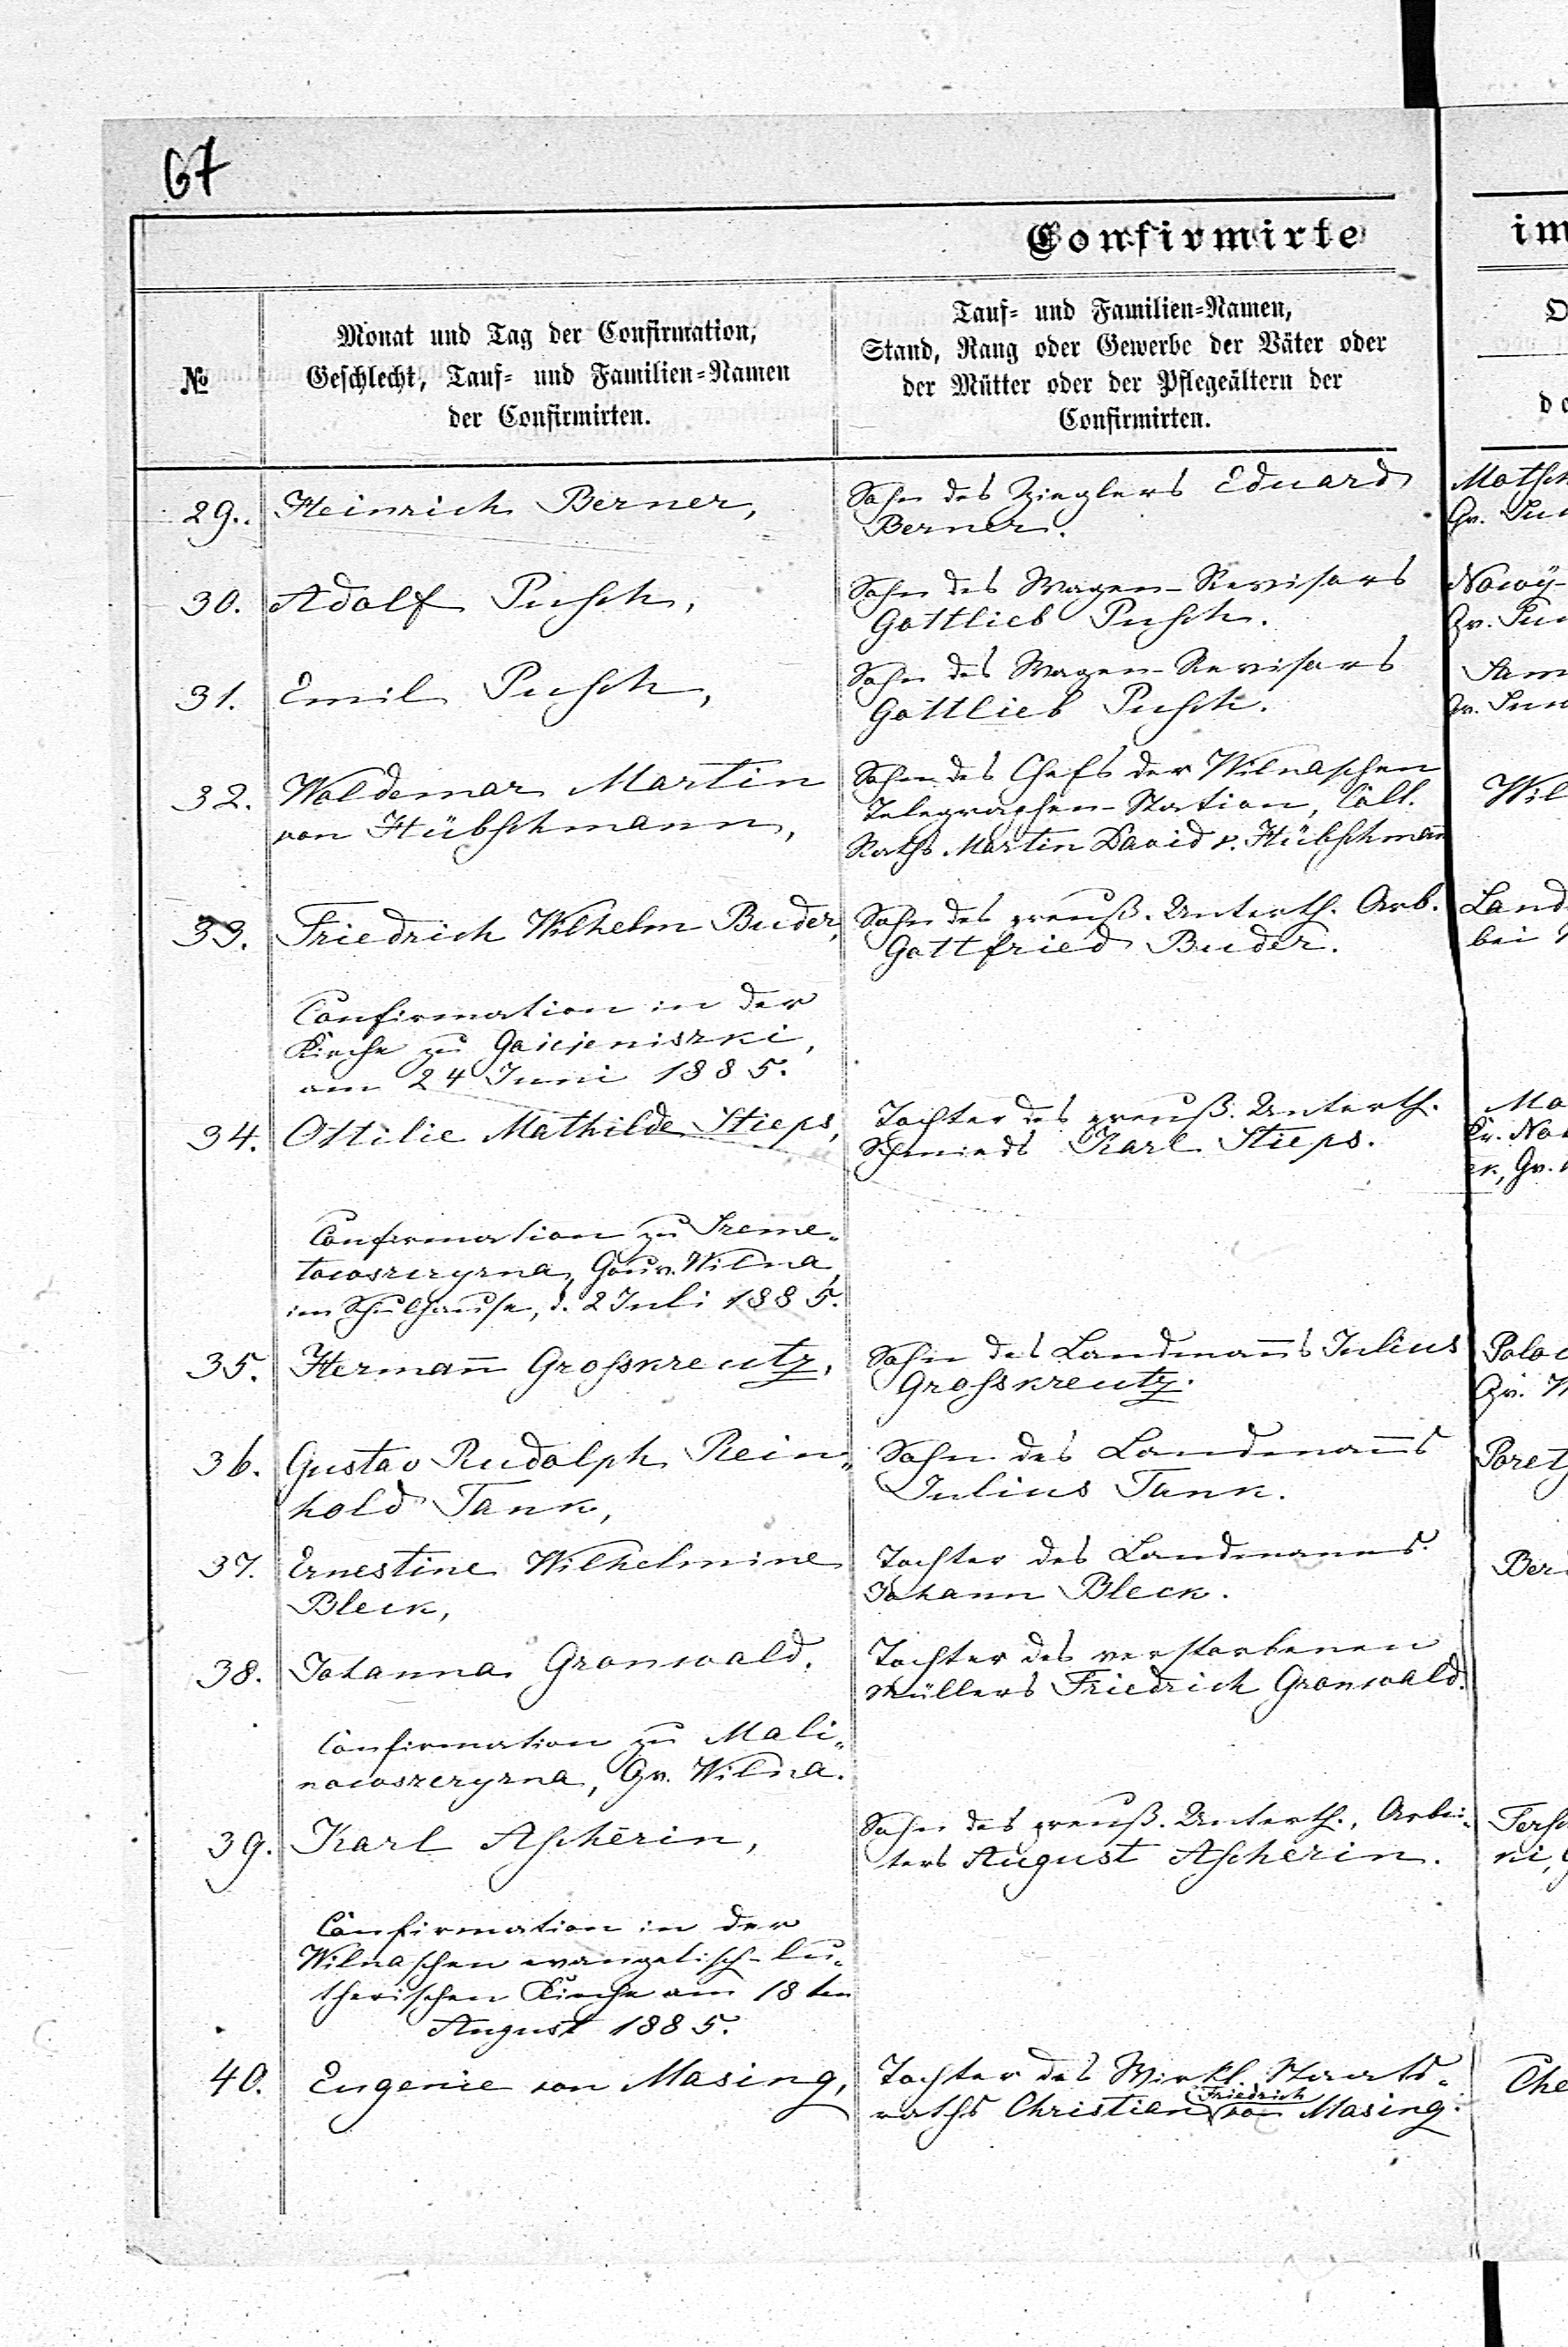 67
Confirmirte im
№
Monat und Tag der Confirmation,
Geschlecht, Tauf- und Familien-Namen
der Confirmirten.
Tauf- und Familien-Namen,
Stand, Rang oder Gewerbe der Väter oder
der Mütter oder der Pflegeältern der
Confirmirten.
29. Heinrich Berner,
Sohn des Zieglers Eduard
Berner.
30. Adolf Pusch,
Sohn des Wagen-Revisors
Gottlieb Pusch.
31. Emil Pusch,
Sohn des Wagen-Revisors
Gottlieb Pusch.
32. Woldemar Martin
von Hübschmann,
Sohn des Chefs der Wilnaschen
Telegraphen-Station, Coll.
Raths Martin David v. Hübschman̄
Wil
33. Friedrich Wilhelm Buder,
Sohn des preuß. Unterth. Arb.
Gottfried Buder.
Land
bei
Confirmation in der
Kirche zu
am 24 Juni 1885.
34. Ottilie Mathilde Stieps,
Tochter des preuß. Unterth.
Schmieds Karl Stieps.
Confirmation zu Sreme-
towoszczyzna, Gouv. Wilna,
im Schulhause, d. 2 Juli 1885.
35. Herman̄ Grosskreutz,
Sohn des Landman̄s Julius
Grosskreutz.
36. Gustav Rudolph Rein-
hold Tank,
Sohn des Landman̄s
Julius Tank.
37. Ernestine Wilhelmine
Bleck,
Tochter des Landmanns
Johann Bleck.
38. Johanna Gronwald.
Tochter des verstorbenen
Müllers Friedrich Gronwald.
Confirmation zu Mali-
nowoszczyzna, Gv. Wilna.
39. Karl Ascherin,
Sohn des preuß. Unterth., Arbei-
ters August Ascherin.
Confirmation in der
Wilnaschen evangelisch-lu-
therischen Kirche am 18ten
August 1885.
40. Eugenie von Masing,
Tochter des Wirkl. Staats-
raths Christian Friedrich von Masing.
Che